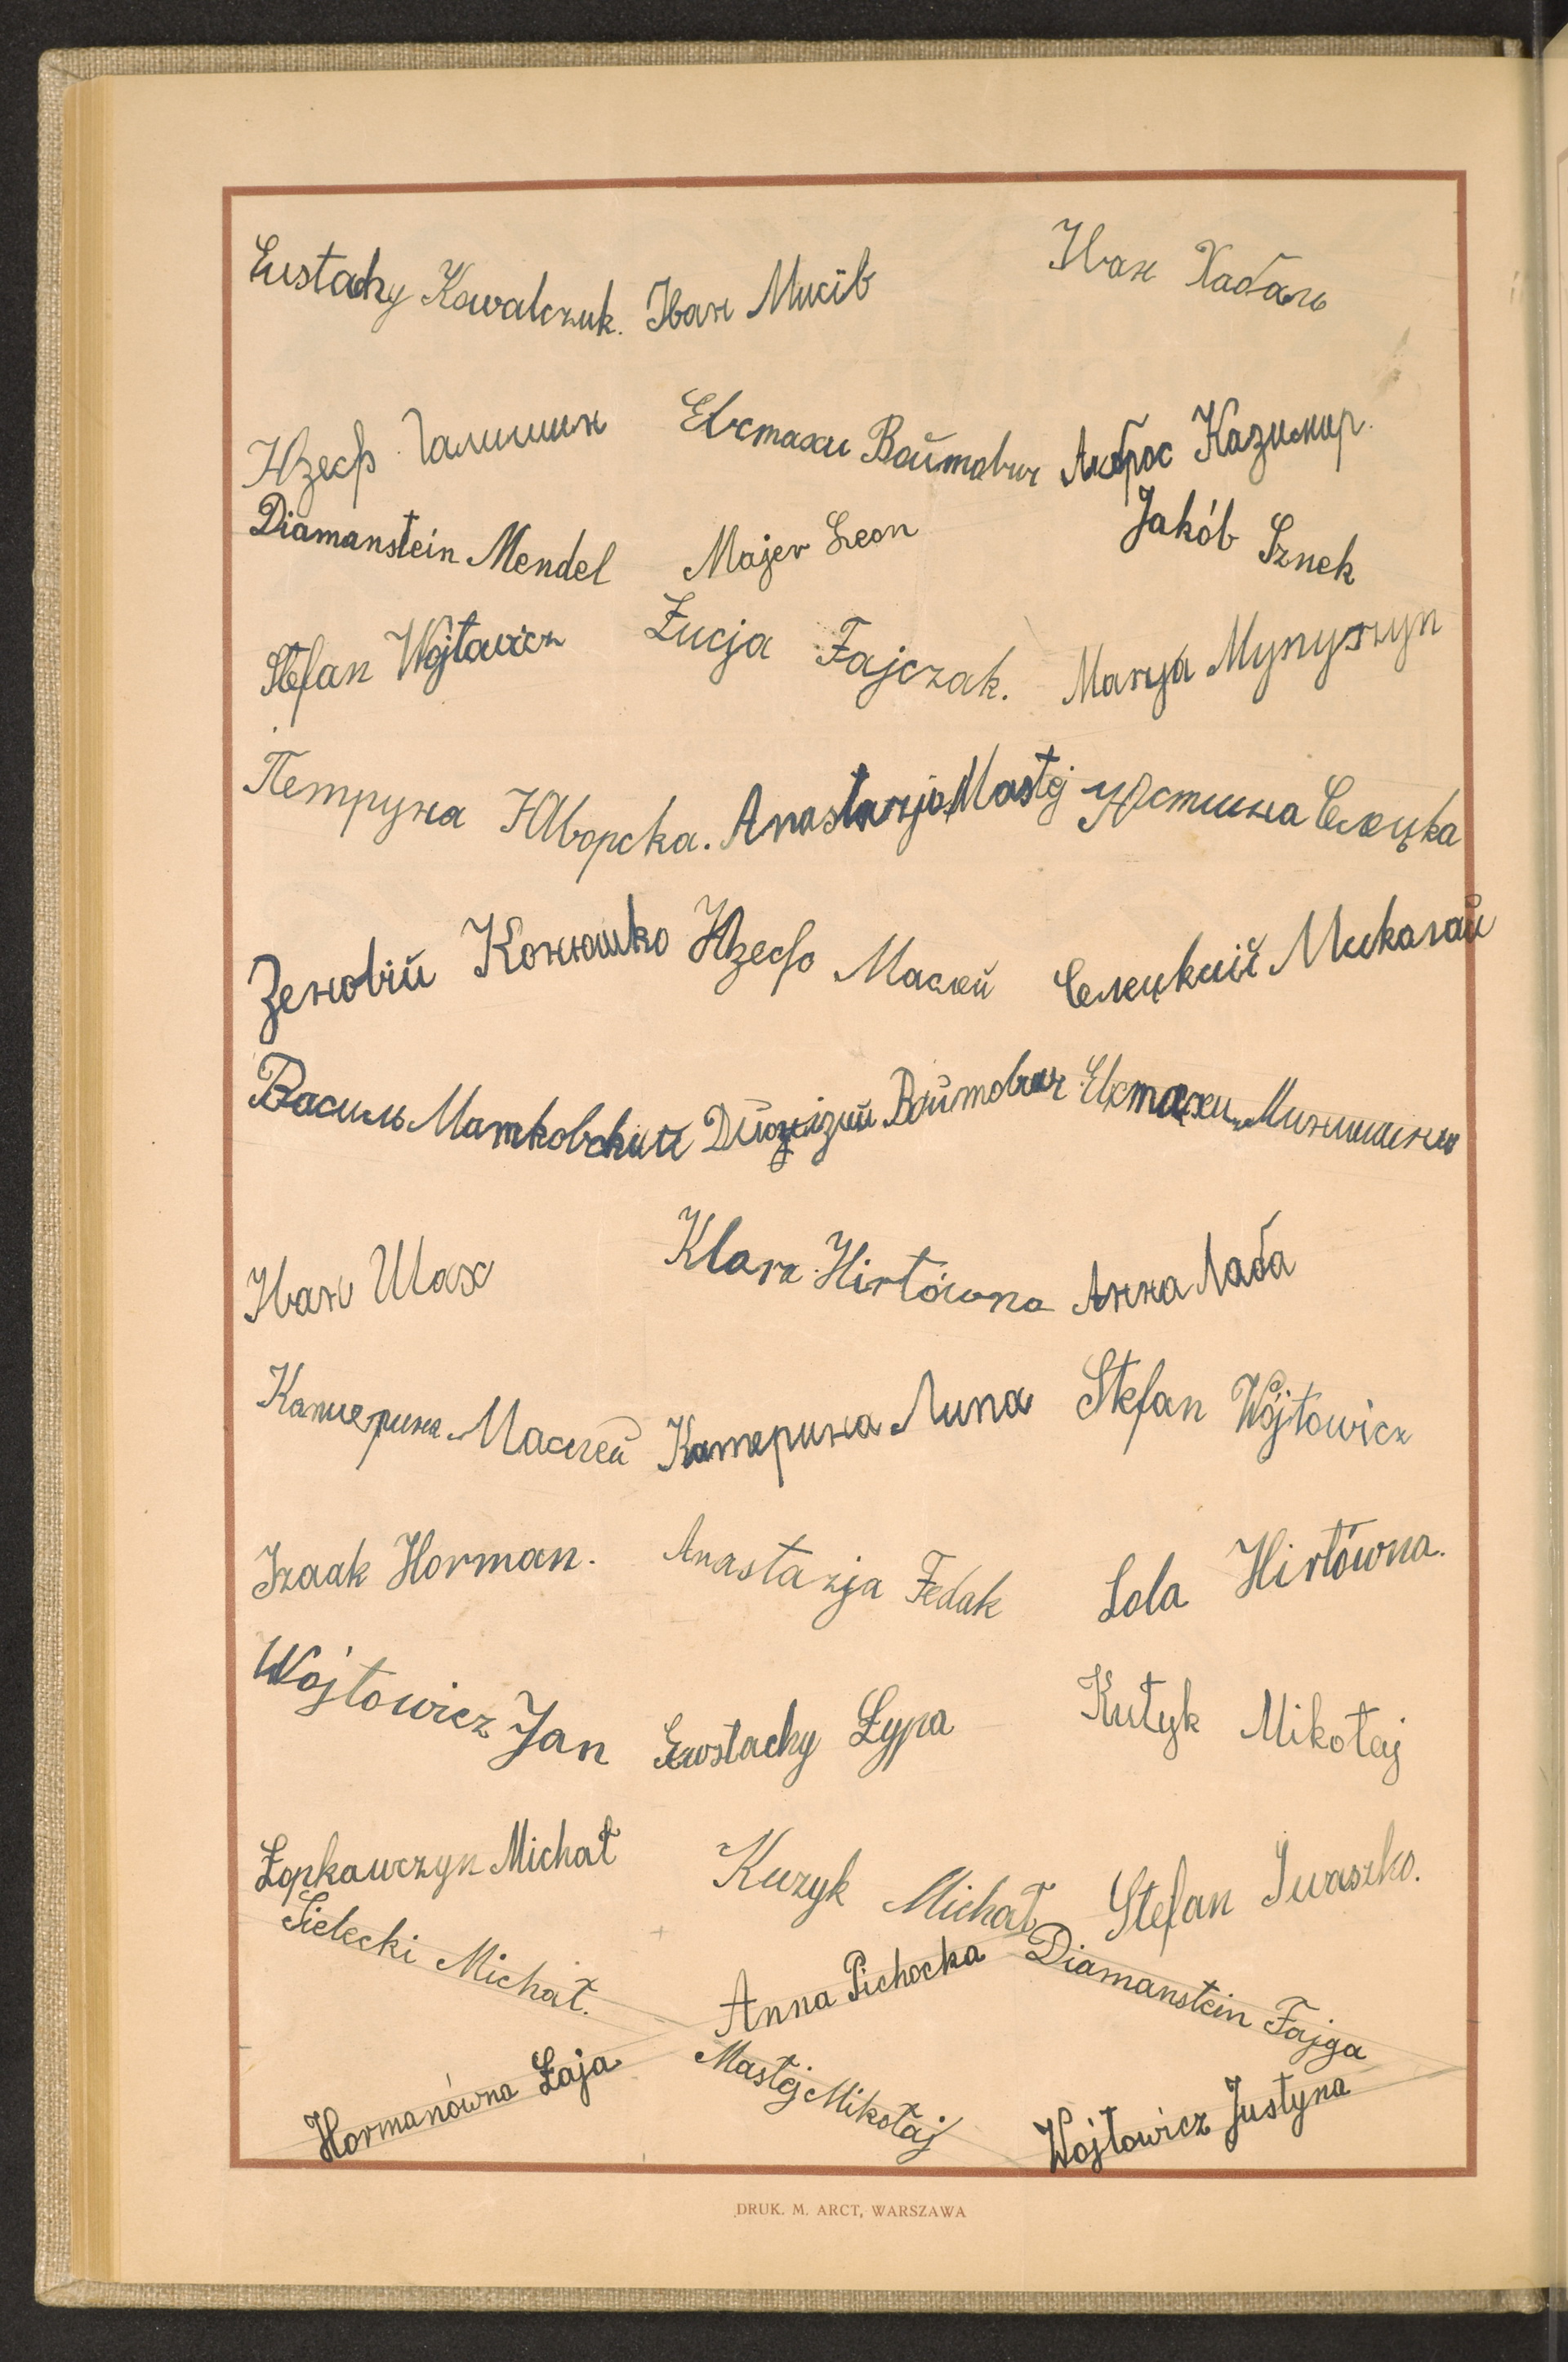 Eustachy Kowalczuk. Іван Мисів Іван Хабаль
Юзеф Галишин Евстахи Войтович Амброс Казимир.
Diamanstein Mendel Majer Leon Jakób Sznek
Stefan Wójtowicz Łucja Fajczak. Мария
Петруня Яворска. Anastazja Mastej Юстина Селецка
Зеновій Конюшко Юзеф Мастей Селецкий Миколай
Василь Матковский Дионізий Войтович Евстахи
Іван Шах Klara Hirtówna Анна Лаба
Катерина Мастей Катерина Липа Stefan Wójtowicz
Izaak Horman. Anastazja Fedak Lola Hirtówna.
Wojtowicz Jan Eustachy Łypa Kutyk Mikołaj
Łopkawczyn Michał Kuzyk Michał Stefan Iwaszko.
Sielecki Michał. Anna Pichocka Diamanstein Fajga
Hormanówna Łaja Mastej Mikołaj Wojtowicz Justyna
DRUK. M. ARCT, WARSZAWA